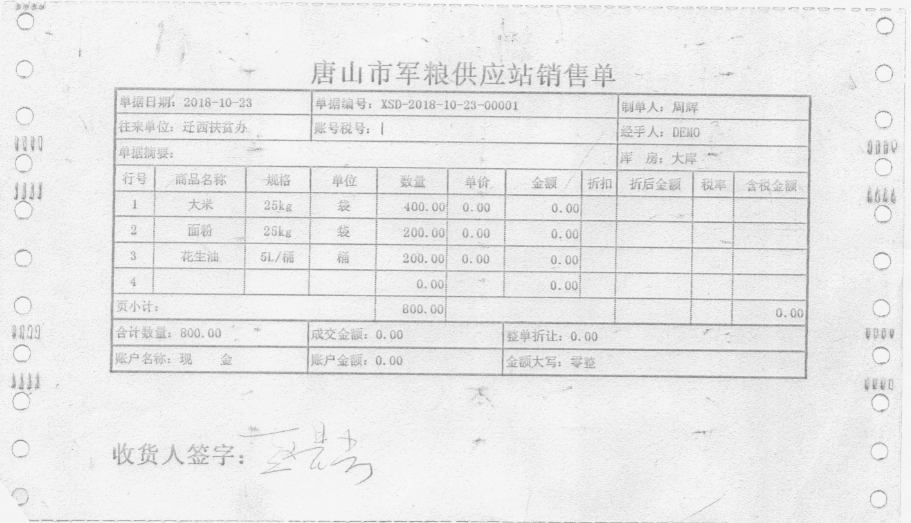 唐山市军粮供应站销售单
单据日期: 2018-10-23 单据编号: XSD-2018-10-23-00001 制单人: 周辉
往来单位: 迁西扶贫办 账号税号: 经手人: DEMO
单据摘要: 库 房: 大库
行号 商品名称 规格 单位 数量 单价 金额 折扣 折后金额 税率 含税金额
1 大米 25kg 袋 400.00 0.00 0.00
2 面粉 25kg 袋 200.00 0.00 0.00
3 花生油 5L/桶 桶 200.00 0.00 0.00
4 0.00 0.00
页小计: 800.00 0.00
合计数量: 800.00 成交金额: 0.00 整单折让: 0.00
账户名称: 现 金 账户金额: 0.00 金额大写: 零整
收货人签字: